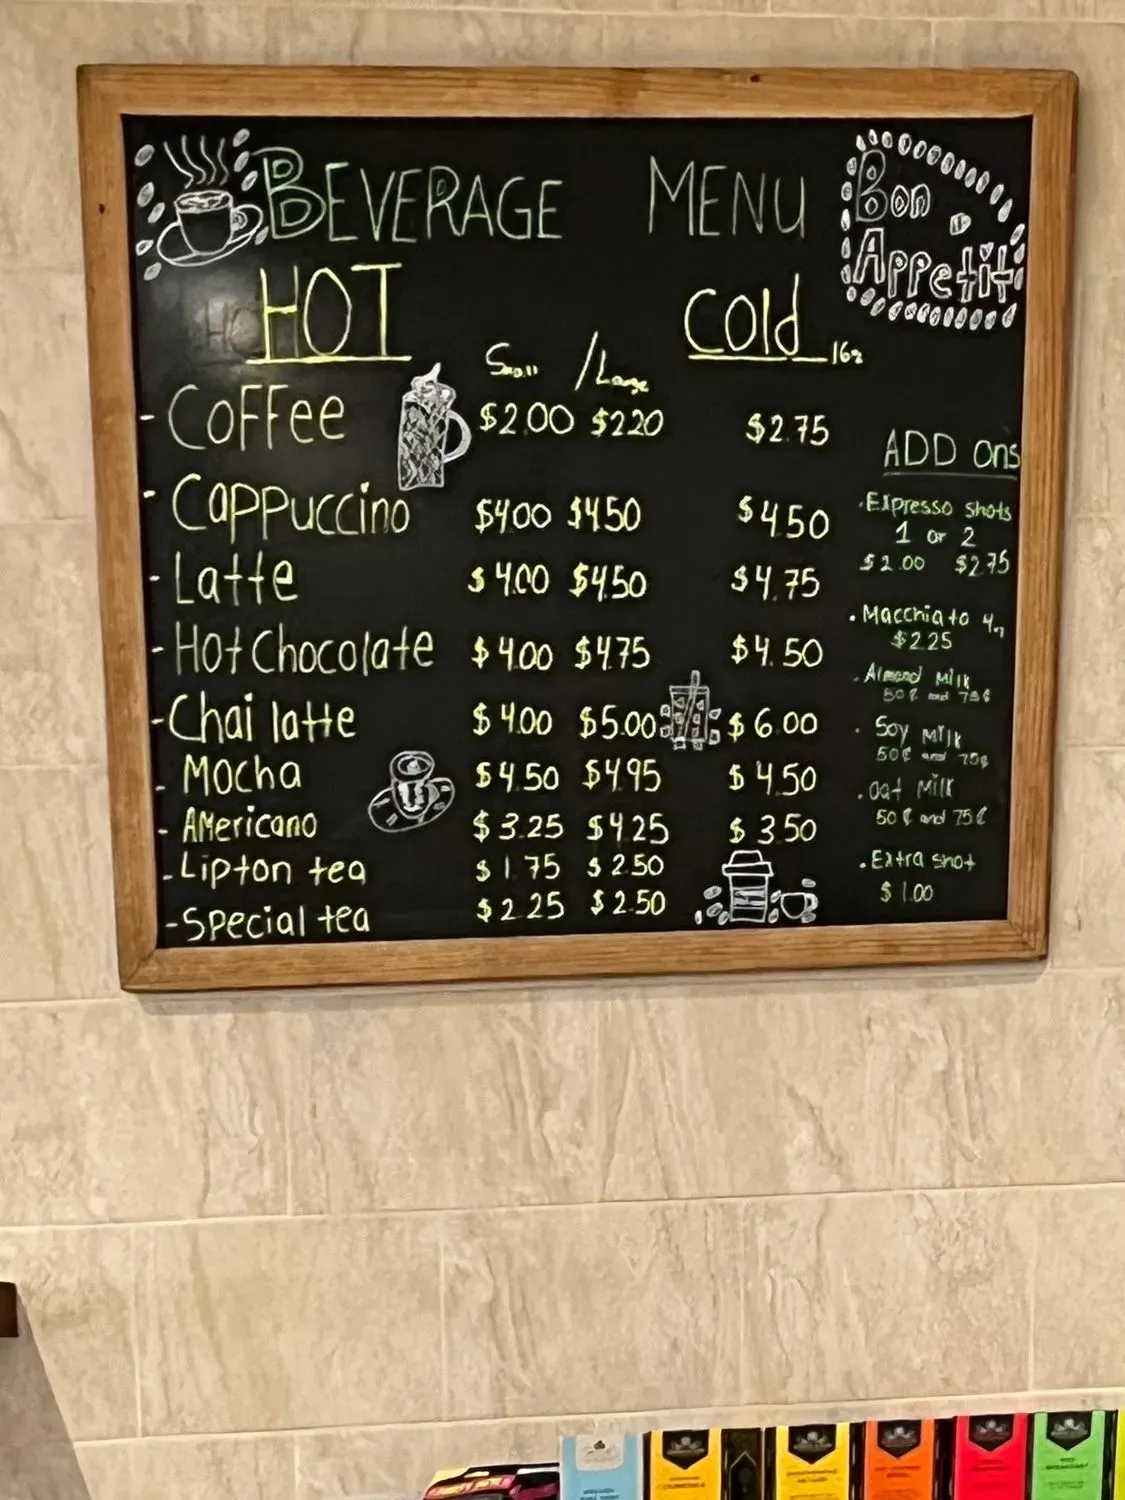 BEVERAGE MENU
Bon
Appetit
HOT
Cold 16z
Small / Large
- Coffee $2.00 $2.20 $2.75
- Cappuccino $4.00 $4.50 $4.50
- Latte $4.00 $4.50 $4.75
- Hot Chocolate $4.00 $4.75 $4.50
- Chai latte $4.00 $5.00 $6.00
- Mocha $4.50 $4.95 $4.50
- Americano $3.25 $4.25 $3.50
- Lipton tea $1.75 $2.50
- Special tea $2.25 $2.50
ADD ons
. Expresso shots
1 or 2
$2.00 $2.75
. Macchiato
$2.25
. Almond Milk
50¢ and 75¢
. Soy Milk
50¢ and 75¢
. oat Milk
50¢ and 75¢
. Extra shot
$1.00